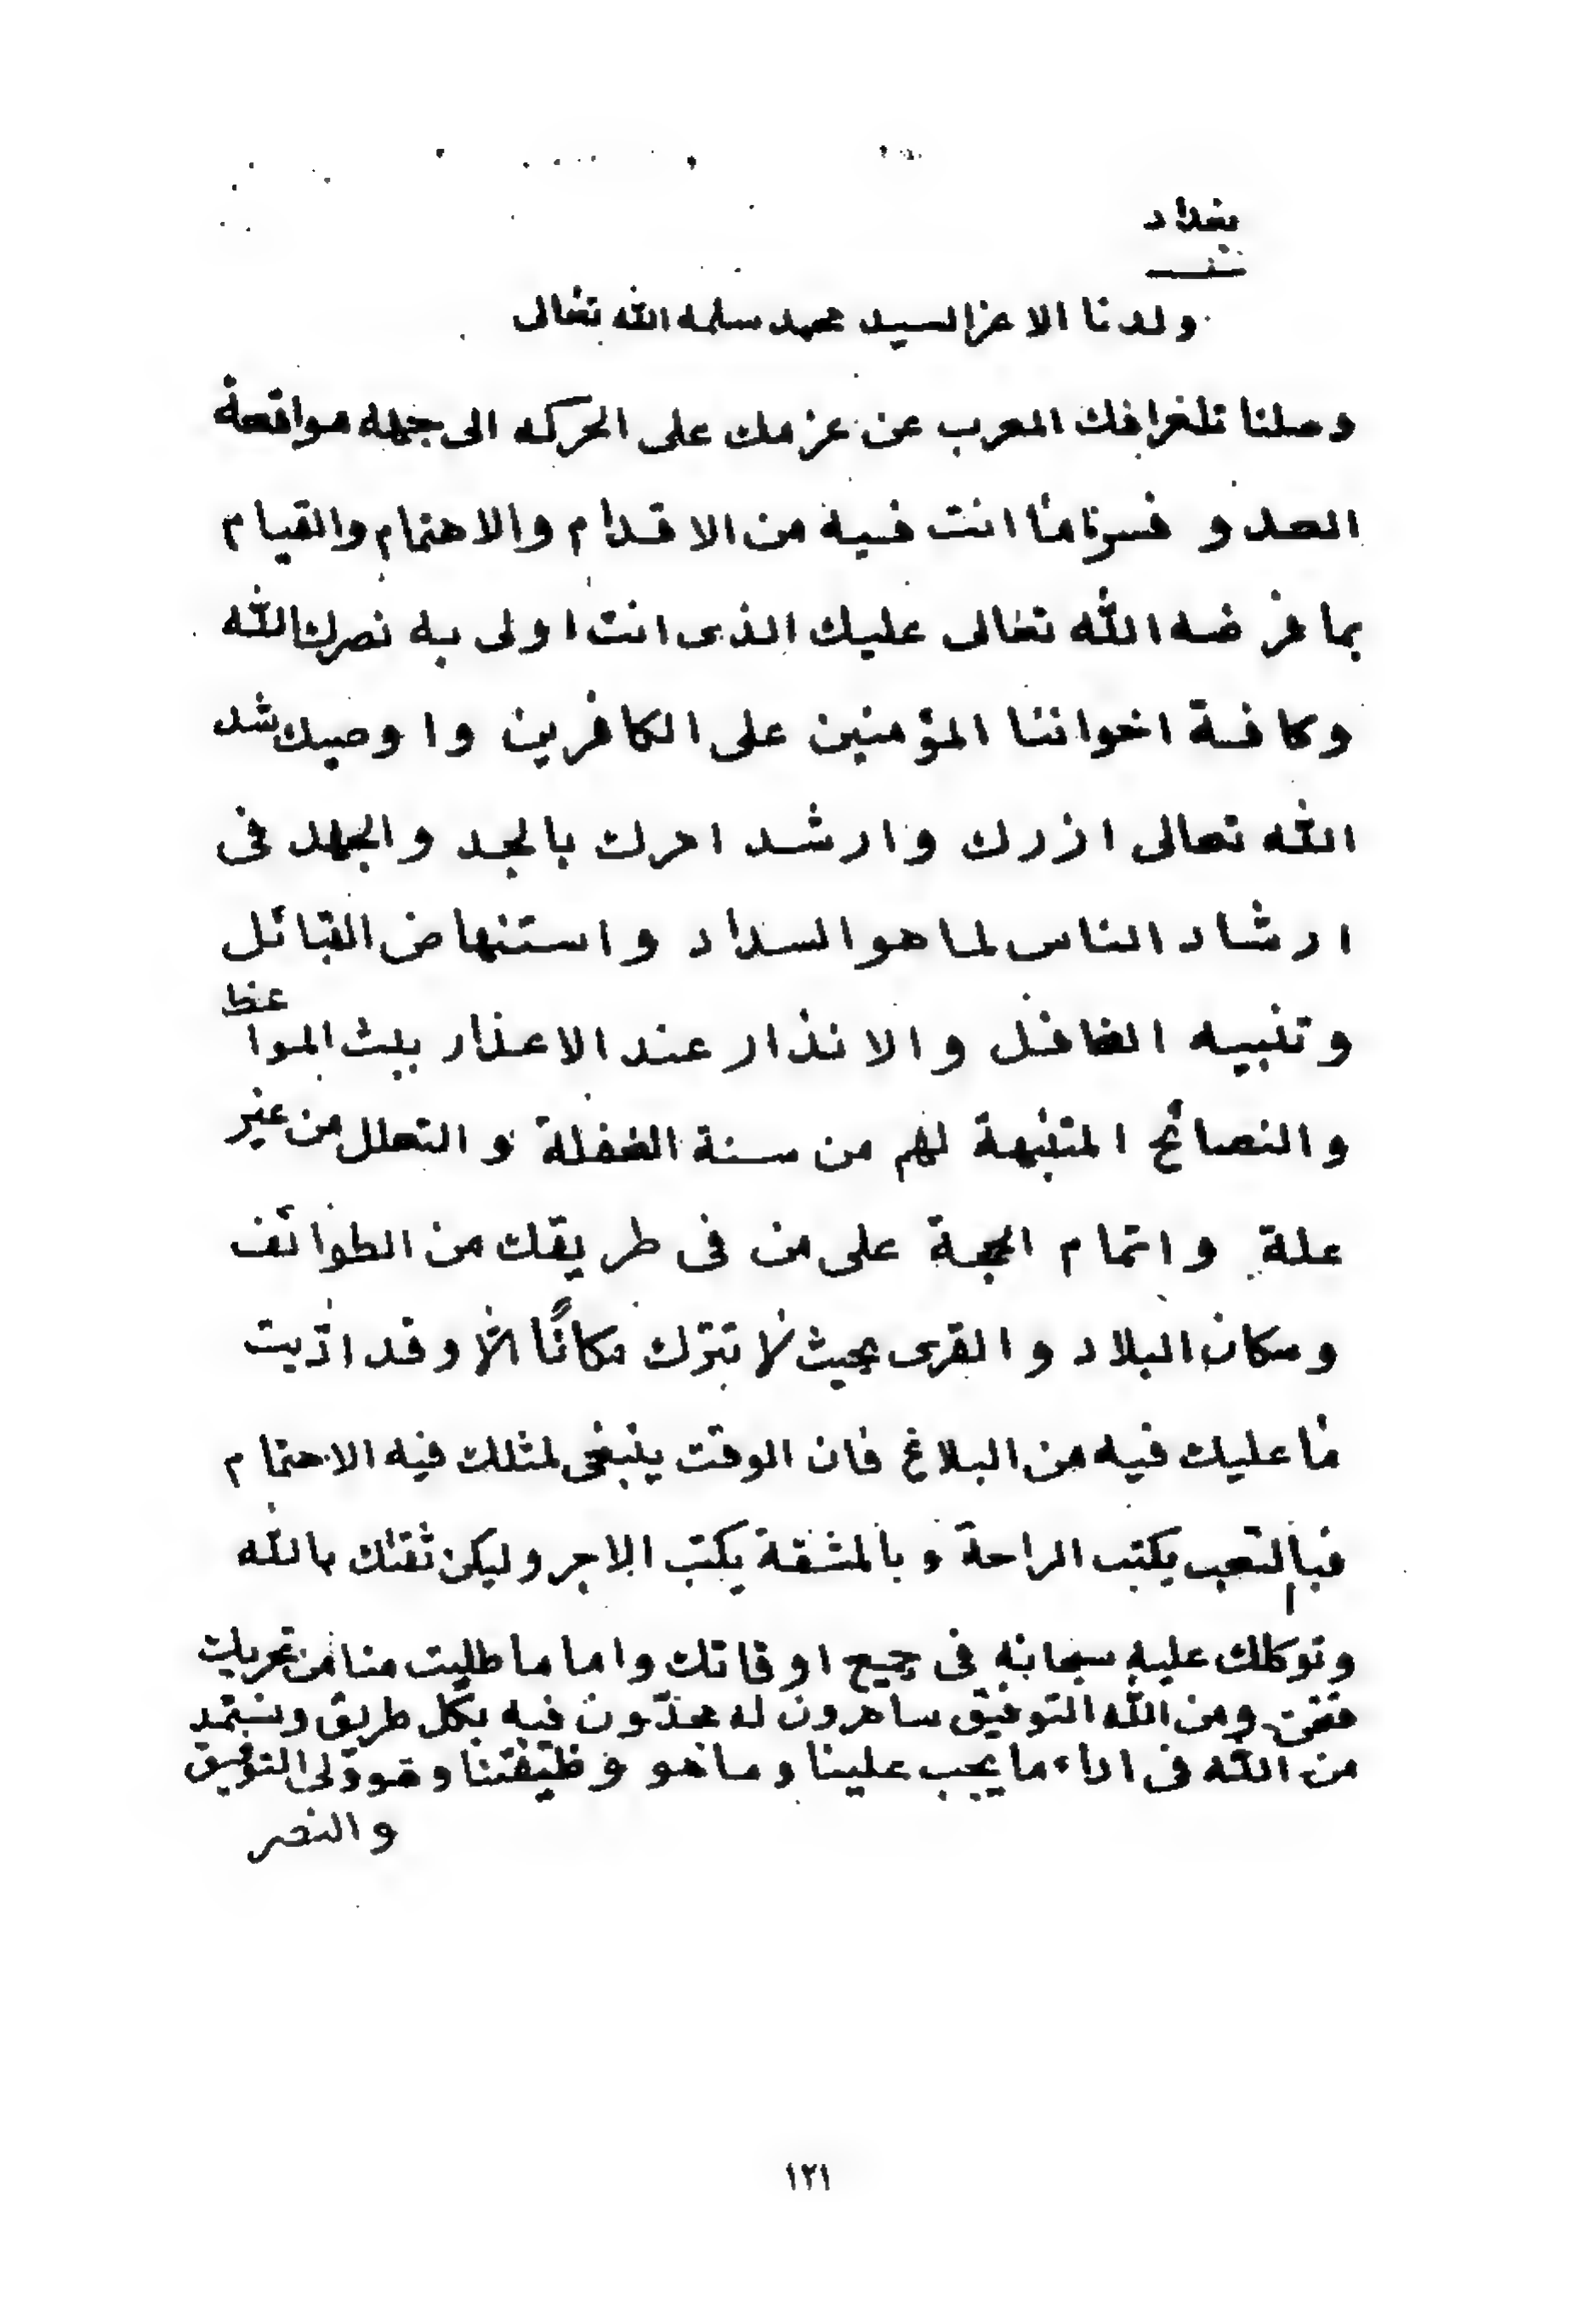 بغداد
ولدنا الاعز السيد محمد سلمه الله تعالى
وصلنا تلغرافك المعرب عن عزمك على الحركه الى جهه مواقعة
العدو فسرنا ما انت فيه من الاقدام والاهتمام والقيام
بما فرضه الله تعالى عليك الذى انت اولى به نصرك الله
وكافة اخواننا المؤمنين على الكافرين واوصيك شد
الله تعالى ازرك وارشد امرك بالجد والجهد فى
ارشاد الناس لما هو السداد واستنهاض القبائل
وتنبيه الغافل والانذار عند الاعذار ببث المواعظ
والنصائح المتنبهة لهم من سنة الغفلة والتعلل من غير
علة واتمام الحجة على من فى طريقك من الطوائف
وسكان البلاد والقرى بحيث لا تترك مكانًا الّا وقد ادّيت
ما عليك فيه من البلاغ فان الوقت ينبغى لمثلك فيه الاهتمام
فبالتعب يكتب الراحة وبالمشقة يكتب الاجر وليكن ثقتك بالله
وتوكلك عليه سبحانه فى جميع اوقاتك واما ما طلبت منا من تحريك
فنحن ومن الله التوفيق ساهرون له مجدّون فيه بكل طريق ونستمد
من الله فى اداء ما يجب علينا وما هو وظيفتنا وهو ولى التوفيق
والنصر
١٢١